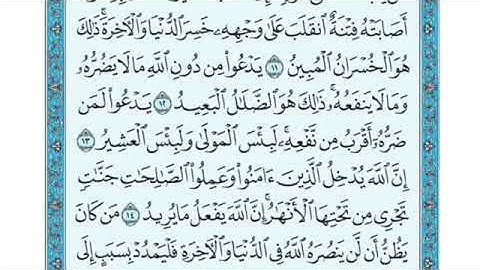 أَصَابَتْهُ فِتْنَةٌ ٱنقَلَبَ عَلَىٰ وَجْهِهِۦ خَسِرَ ٱلدُّنْيَا وَٱلْـَٔاخِرَةَۚ ذَٰلِكَ
هُوَ ٱلْخُسْرَانُ ٱلْمُبِينُ ١١ يَدْعُوا۟ مِن دُونِ ٱللَّهِ مَا لَا يَضُرُّهُۥ
وَمَا لَا يَنفَعُهُۥۚ ذَٰلِكَ هُوَ ٱلضَّلَـٰلُ ٱلْبَعِيدُ ١٢ يَدْعُوا۟ لَمَن
ضَرُّهُۥٓ أَقْرَبُ مِن نَّفْعِهِۦۚ لَبِئْسَ ٱلْمَوْلَىٰ وَلَبِئْسَ ٱلْعَشِيرُ ١٣
إِنَّ ٱللَّهَ يُدْخِلُ ٱلَّذِينَ ءَامَنُوا۟ وَعَمِلُوا۟ ٱلصَّـٰلِحَـٰتِ جَنَّـٰتٍ
تَجْرِى مِن تَحْتِهَا ٱلْأَنْهَـٰرُۚ إِنَّ ٱللَّهَ يَفْعَلُ مَا يُرِيدُ ١٤ مَن كَانَ
يَظُنُّ أَن لَّن يَنصُرَهُ ٱللَّهُ فِى ٱلدُّنْيَا وَٱلْـَٔاخِرَةِ فَلْيَمْدُدْ بِسَبَبٍ إِلَى